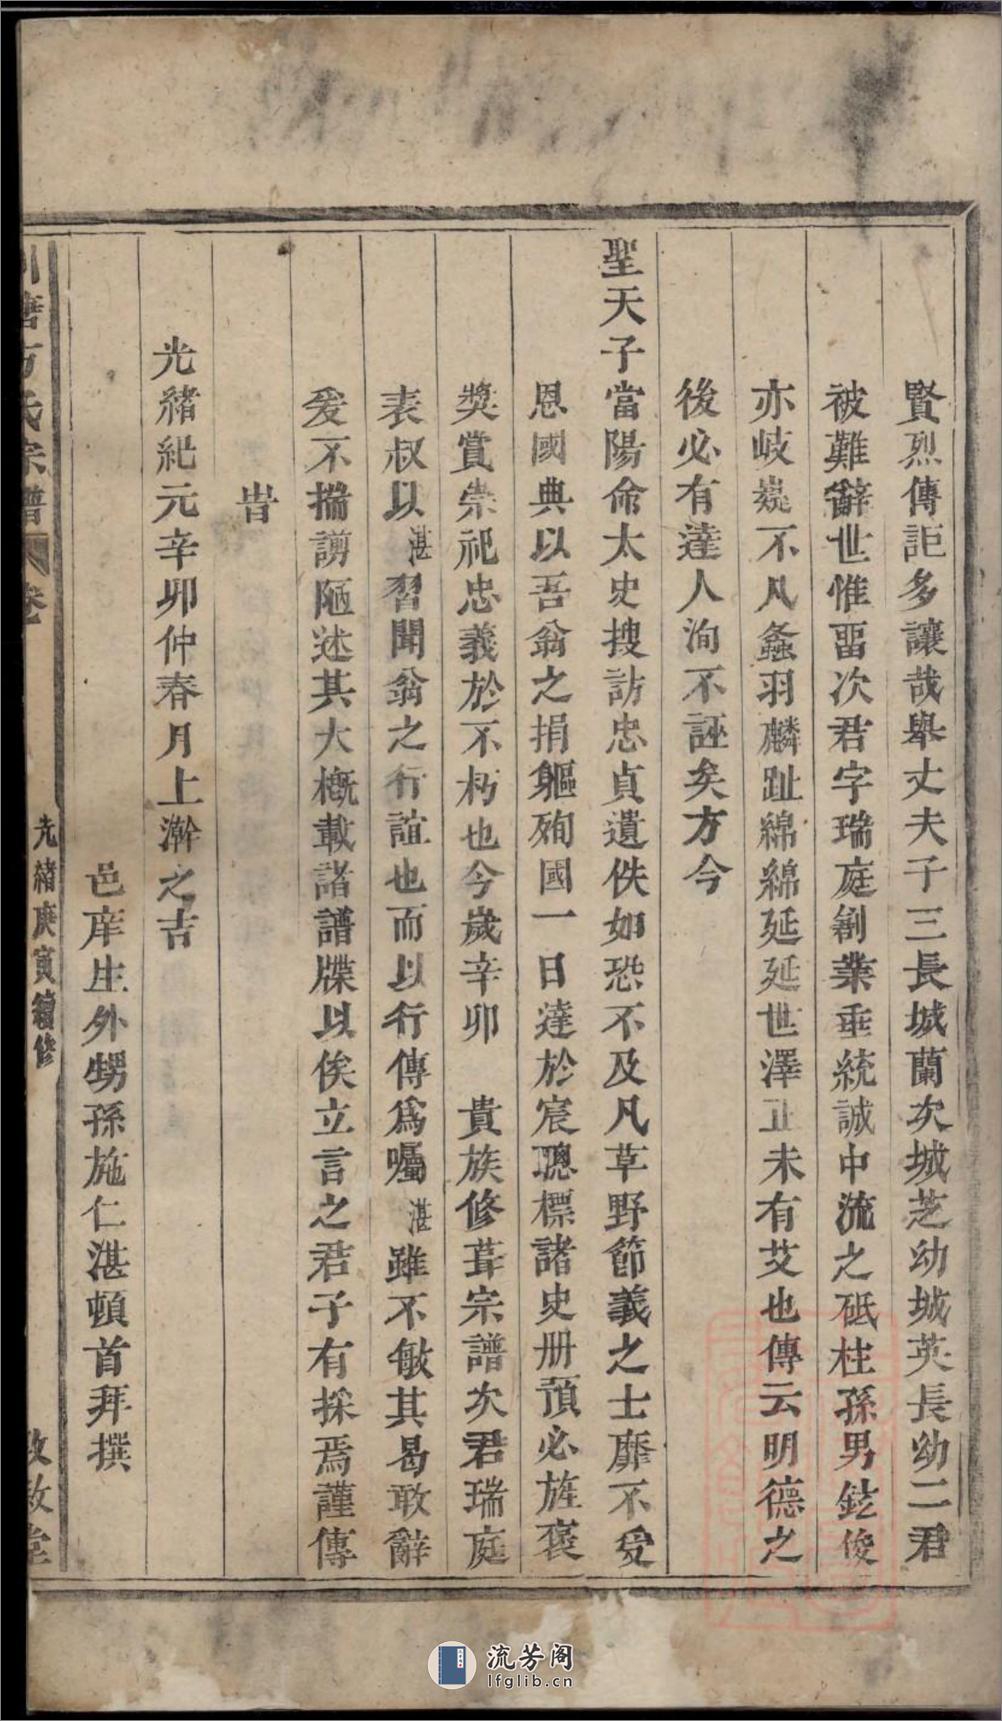 賢烈傳詎多讓哉舉丈夫子三長城蘭次城芝幼城英長幼二君
被難辭世惟畱次君字瑞庭創業垂統誠中流之砥柱孫男鈜俊
亦岐嶷不凡螽羽麟趾綿綿延延世澤正未有艾也傳云明德之
後必有達人洵不誣矣方今
聖天子當陽命太史搜訪忠貞遺佚如恐不及凡草野節義之士靡不受
恩國典以吾翁之捐軀殉國一日達於宸聰標諸史册預必旌褒
獎賞崇祀忠義於不朽也今歲辛卯 貴族修葺宗譜次君瑞庭
表叔以湛習聞翁之行誼也而以行傳爲囑湛雖不敏其曷敢辭
爰不揣謭陋述其大槪載諸譜牒以俟立言之君子有採焉謹傳
旹
光緒紀元辛卯仲春月上澣之吉
邑庠生外甥孫施仁湛頓首拜撰
塘方氏宗譜 卷
光緒庚寅續修
敦敘堂
流芳阁
lfglib.cn